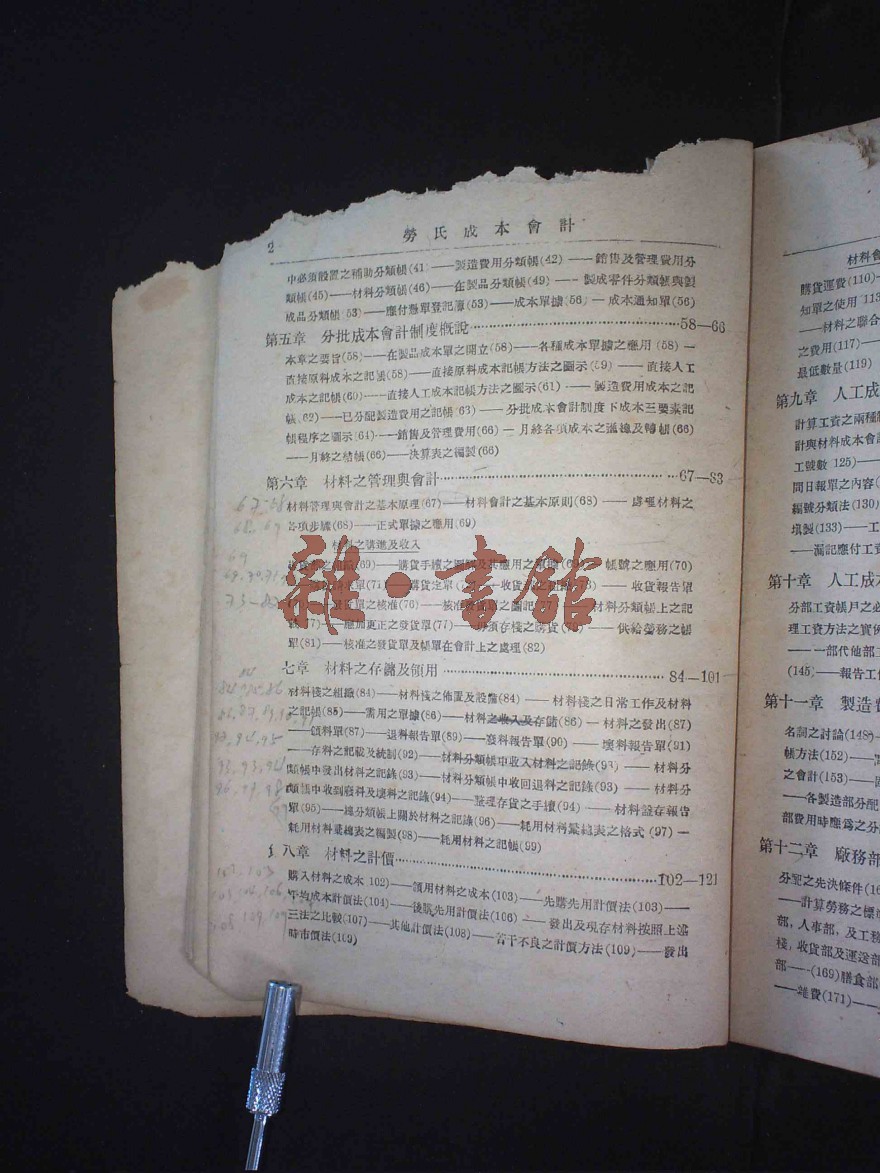 2
勞氏成本會計
中必須設置之補助分類帳(41)——製造費用分類帳(42)——銷售及管理費用分
類帳(45)——材料分類帳(46)——在製品分類帳(49)——製成零件分類帳與製
成品分類帳(53)——應付憑單登記簿(53)——成本單據(56)——成本通知單(56)
第五章 分批成本會計制度概說……58—66
本章之要旨(58)——在製品成本單之開立(58)——各種成本單據之應用(58)—
直接原料成本之記帳(58)——直接原料成本記帳方法之圖示(59)——直接人工
成本之記帳(60)——直接人工成本記帳方法之圖示(61)——製造費用成本之記
帳(62)——已分配製造費用之記帳(63)——分批成本會計制度下成本三要素記
帳程序之圖示(64)——銷售及管理費用(66)—月終各項成本之滙總及轉帳(66)
——月終之結帳(66)——決算表之編製(66)
第六章 材料之管理與會計……67—83
材料管理與會計之基本原理(67)——材料會計之基本原則(68)——處理材料之
各項步驟(68)——正式單據之應用(69)
材料之購進及收入
(69)——購貨手續之圖解及其應用之單據(69)——帳號之應用(70)
(71)——購貨定單——收貨——收貨報告單
之核准(76)——核准發貨單之圖記(77)——材料分類帳上之記
(77)——應加更正之發貨單(77)——存棧之購貨——供給勞務之帳
單(81)——核准之發貨單及帳單在會計上之處理(82)
七章 材料之存儲及領用……84—101
材料棧之組織(84)——材料棧之佈置及設備(84)——材料棧之日常工作及材料
之記帳(85)——需用之單據(86)——材料之收入及存儲(86)—材料之發出(87)
——領料單(87)——退料報告單(89)——廢料報告單(90)——壞料報告單(91)
——存料之記載及統制(92)——材料分類帳中收入材料之記錄(93)——材料分
類帳中發出材料之記錄(93)——材料分類帳中收回退料之記錄(93)——材料分
類帳中收到廢料及壞料之記錄(94)——整理存貨之手續(94)——材料盤存報告
單(95)——總分類帳上關於材料之記錄(96)——耗用材料彙總表之格式(97)—
耗用材料彙總表之編製(98)——耗用材料之記帳(99)
八章 材料之計價……102—121
購入材料之成本(102)——領用材料之成本(103)——先購先用計價法(103)——
平均成本計價法(104)——後購先用計價法(106)——發出及現存材料按照上述
三法之比較(107)——其他計價法(108)——若干不良之計價方法(109)——發出
時市價法(109)
雜·書館
材料會
購貨運費(110)—
知單之使用(113
——材料之聯合
之費用(117)——
最低數量(119)
第九章 人工成
計算工資之兩種
計與材料成本會
工號數(125)——
間日報單之內容(
編號分類法(130)
填製(133)——工
——漏記應付工資
第十章 人工成本
分部工資帳戶之必
理工資方法之實例
——一部代他部工
(145)——報告工作
第十一章 製造費
名詞之討論(148)—
帳方法(152)——
之會計(153)——
——各製造部分配
部費用時應爲之分
第十二章 廠務部
分配之先決條件(16
——計算勞務之標準
部,人事部,及工務
棧,收貨部及運送部
部——(169)膳食部
——雜費(171)——